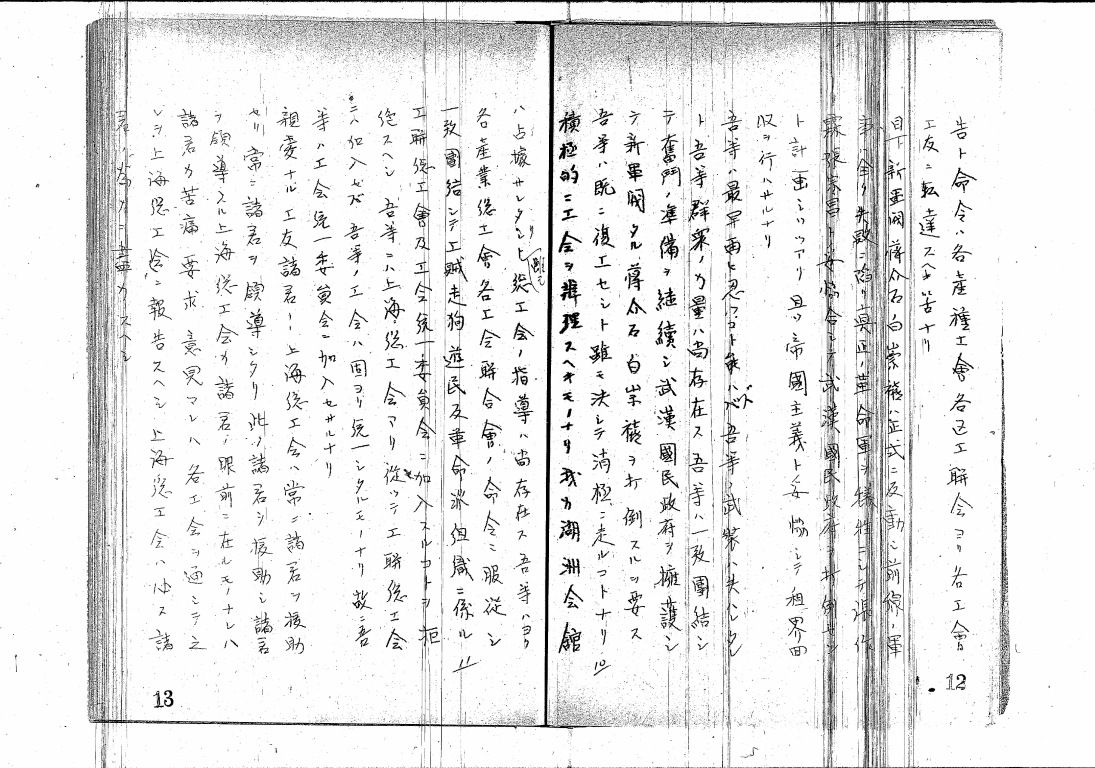 告ト命令ハ各産種工會各区工聯会ヨリ各工會
工友ニ転達スヘキ筈ナリ
目下新軍閥蒋介石白崇禧ハ正式ニ反動シ前線ノ軍
事ハ全ク失敗ニ陥リ真正ノ革命軍ヲ犠牲ニシテ張作
霖張宗昌ト妥協合シテ武漢國民政府ヲ打倒セン
ト計画シツツアリ且ツ帝國主義ト妥協シテ租界回
収ヲ行ハサルナリ
吾等ハ最早再ヒ忍フコト能ハズ吾等ノ武装ハ失ヒタレド
ト吾等群衆ノ力量ハ尚存在ス吾等ハ一致團結シ
テ奮鬥準備ヲ継続シ武漢國民政府ヲ擁護シ
テ新軍閥タル蒋介石白崇禧ヲ打倒スルヲ要ス
吾等ハ既ニ復工セシト雖モ決シテ消極ニ走ルコトナリ 10
積極的ニ工会ヲ辨理スヘキモノナリ我カ湖洲会館
ハ占據サレタリト雖モ総工会ノ指導ハ尚存在ス吾等ハヨク
各産業総工會各工会聯合會ノ命令ニ服従シ
一致團結シテ工賊走狗遊民及革命派組織ニ係ル 11
工聯総工會及工会統一委員会ニ加入スルコトヲ拒
絶スヘシ 吾等ニハ上海総工会アリ従ツテ工聯総工会
ニハ加入セズ 吾等ノ工会ハ固ヨリ統一シタルモノナリ故ニ吾
等ハ工会統一委員会ニ加入セサルナリ
親愛ナル工友諸君！上海総工会ハ常ニ諸君ヲ援助
セリ常ニ諸君ヲ領導シタリ此ノ諸君ヲ援助シ諸君
ヲ領導スル上海総工会カ諸君ノ眼前ニ在ルモノナレハ
諸君カ苦痛 要求 意見アレハ 各工会ヲ通シテ之
レヲ上海総工会ニ報告スヘシ上海総工会ハ必ス諸
君ノ為メニ盡力スヘシ
12
13